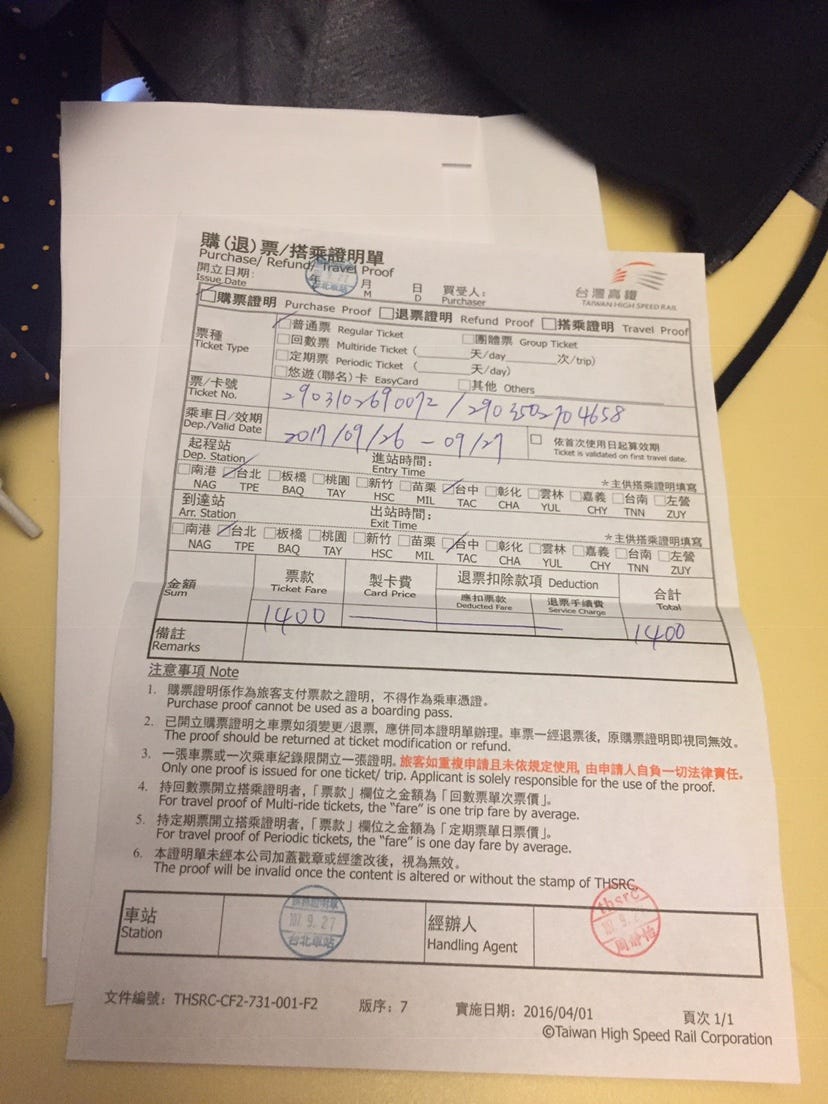 購(退)票/搭乘證明單
Purchase/ Refund/ Travel Proof
台灣高鐵
TAIWAN HIGH SPEED RAIL
開立日期: 年 月 日 買受人:
Issue Date M D Purchaser
台北車站
□購票證明 Purchase Proof □退票證明 Refund Proof □搭乘證明 Travel Proof
票種
Ticket Type
□普通票 Regular Ticket □團體票 Group Ticket
□回數票 Multiride Ticket (　天/day　次/trip)
□定期票 Periodic Ticket (　天/day)
□悠遊(聯名)卡 EasyCard □其他 Others
票/卡號
Ticket No.
2903102690072 / 2903502704658
乘車日/效期
Dep./Valid Date
2017/09/26 - 09/27
□ 依首次使用日起算效期
Ticket is validated on first travel date.
起程站 進站時間:
Dep. Station Entry Time
*主供搭乘證明填寫
□南港 □台北 □板橋 □桃園 □新竹 □苗栗 □台中 □彰化 □雲林 □嘉義 □台南 □左營
NAG TPE BAQ TAY HSC MIL TAC CHA YUL CHY TNN ZUY
到達站 出站時間:
Arr. Station Exit Time
*主供搭乘證明填寫
□南港 □台北 □板橋 □桃園 □新竹 □苗栗 □台中 □彰化 □雲林 □嘉義 □台南 □左營
NAG TPE BAQ TAY HSC MIL TAC CHA YUL CHY TNN ZUY
金額
Sum
票款
Ticket Fare
製卡費
Card Price
退票扣除款項 Deduction
應扣票款
Deducted Fare
退票手續費
Service Charge
合計
Total
1400 1400
備註
Remarks
注意事項 Note
1. 購票證明係作為旅客支付票款之證明，不得作為乘車憑證。
Purchase proof cannot be used as a boarding pass.
2. 已開立購票證明之車票如須變更/退票，應併同本證明單辦理。車票一經退票後，原購票證明即視同無效。
The proof should be returned at ticket modification or refund.
3. 一張車票或一次乘車紀錄限開立一張證明。旅客如重複申請且未依規定使用，由申請人自負一切法律責任。
Only one proof is issued for one ticket/ trip. Applicant is solely responsible for the use of the proof.
4. 持回數票開立搭乘證明者，「票款」欄位之金額為「回數票單次票價」。
For travel proof of Multi-ride tickets, the “fare” is one trip fare by average.
5. 持定期票開立搭乘證明者，「票款」欄位之金額為「定期票單日票價」。
For travel proof of Periodic tickets, the “fare” is one day fare by average.
6. 本證明單未經本公司加蓋戳章或經塗改後，視為無效。
The proof will be invalid once the content is altered or without the stamp of THSRC.
車站
Station
107. 9. 27
台北車站
經辦人
Handling Agent
thsrc
文件編號：THSRC-CF2-731-001-F2 版序：7 實施日期：2016/04/01 頁次 1/1
©Taiwan High Speed Rail Corporation